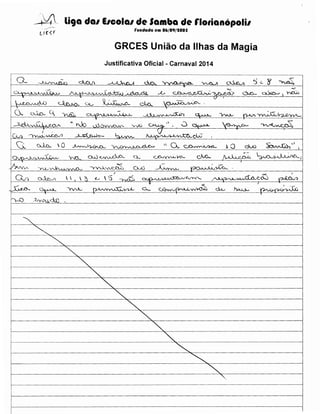 Liga das Escolas de Samba de Florianópolis
Fundada em 06/09/2005
LIESF
GRCES União da Ilhas da Magia
Justificativa Oficial - Carnaval 2014
A união das ilhas da magia nas alas 5 e 8 não
apresentou representatividade e caracterização da ala, não
ficando clara a leitura da fantasia.
A ala 9 não apresentou elementos que me permitissem
identificar "no woman no cry". O que fazia menção
às meninas estava bem representado.
A ala 10 embora nomeada "A camisa 10 do Santos",
apresentou na avenida a camisa da seleção brasileira,
sem nenhuma menção ao time paulista.
As alas 11, 13 e 15 não apresentaram representação plás
tica que me permitisse a compreensão de seu propósito
no enredo.